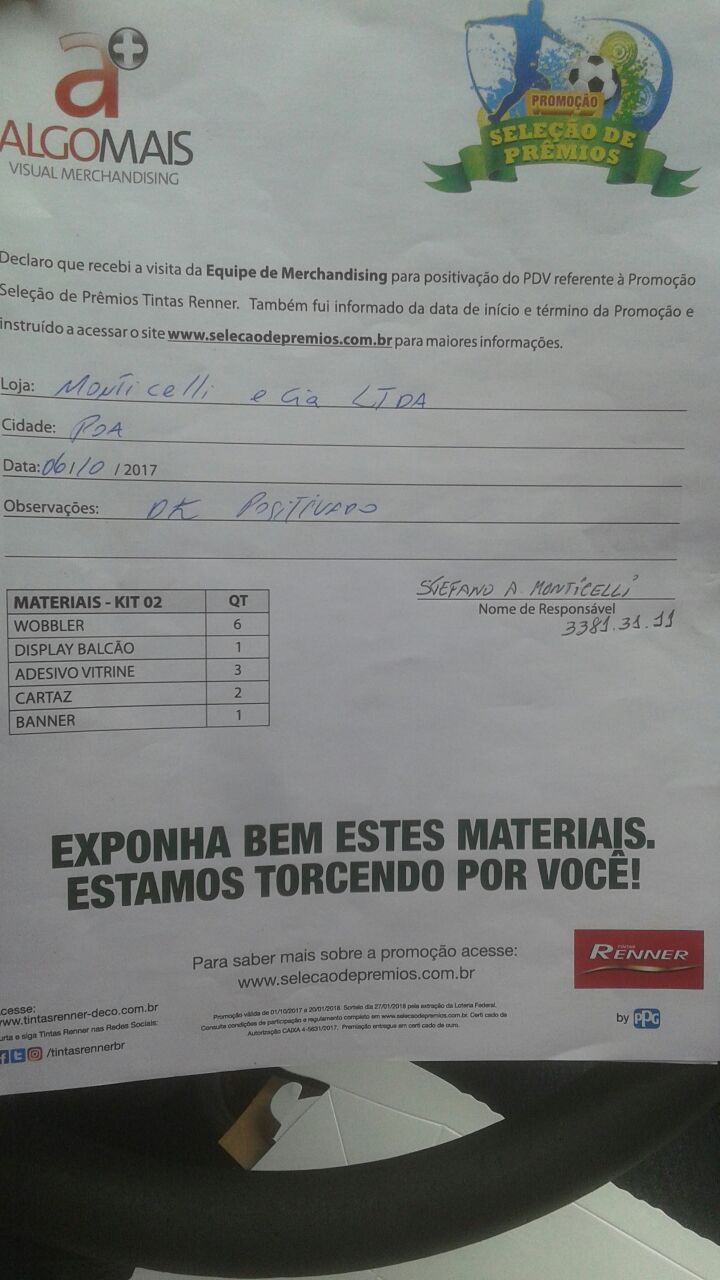 a+
ALGOMAIS
VISUAL MERCHANDISING
PROMOÇÃO
SELEÇÃO DE
PRÊMIOS
Declaro que recebi a visita da Equipe de Merchandising para positivação do PDV referente à Promoção
Seleção de Prêmios Tintas Renner. Também fui informado da data de início e término da Promoção e
instruído a acessar o site www.selecaodepremios.com.br para maiores informações.
Loja: Monticelli e Cia LTDA
Cidade: POA
Data: 06/10/2017
Observações: OK POSITIVADO
STEFANO A. MONTICELLI
Nome de Responsável
3381.31.11
MATERIAIS - KIT 02 QT
WOBBLER 6
DISPLAY BALCÃO 1
ADESIVO VITRINE 3
CARTAZ 2
BANNER 1
EXPONHA BEM ESTES MATERIAIS.
ESTAMOS TORCENDO POR VOCÊ!
Para saber mais sobre a promoção acesse:
www.selecaodepremios.com.br
TINTAS
RENNER
by PPG
cesse:
www.tintasrenner-deco.com.br
urta e siga Tintas Renner nas Redes Sociais:
/tintasrennerbr
Promoção válida de 01/10/2017 a 20/01/2018. Sorteio dia 27/01/2018 pela extração da Loteria Federal.
Consulte condições de participação e regulamento completo em www.selecaodepremios.com.br. Certi cado de
Autorização CAIXA 4-5631/2017. Premiação entregue em certi cado de ouro.